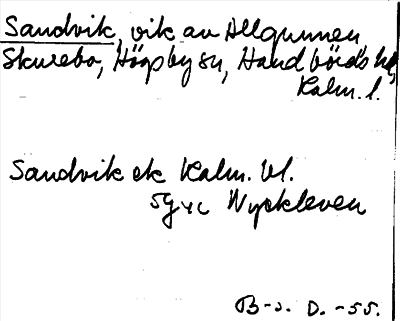 Sandvik, vik av Allgunnen
Skurebo, Högsby sn, Handbörds hd,
Kalm. l.
Sandvik ek Kalm. bl.
5G Nyckleven
B-s. D. -55.